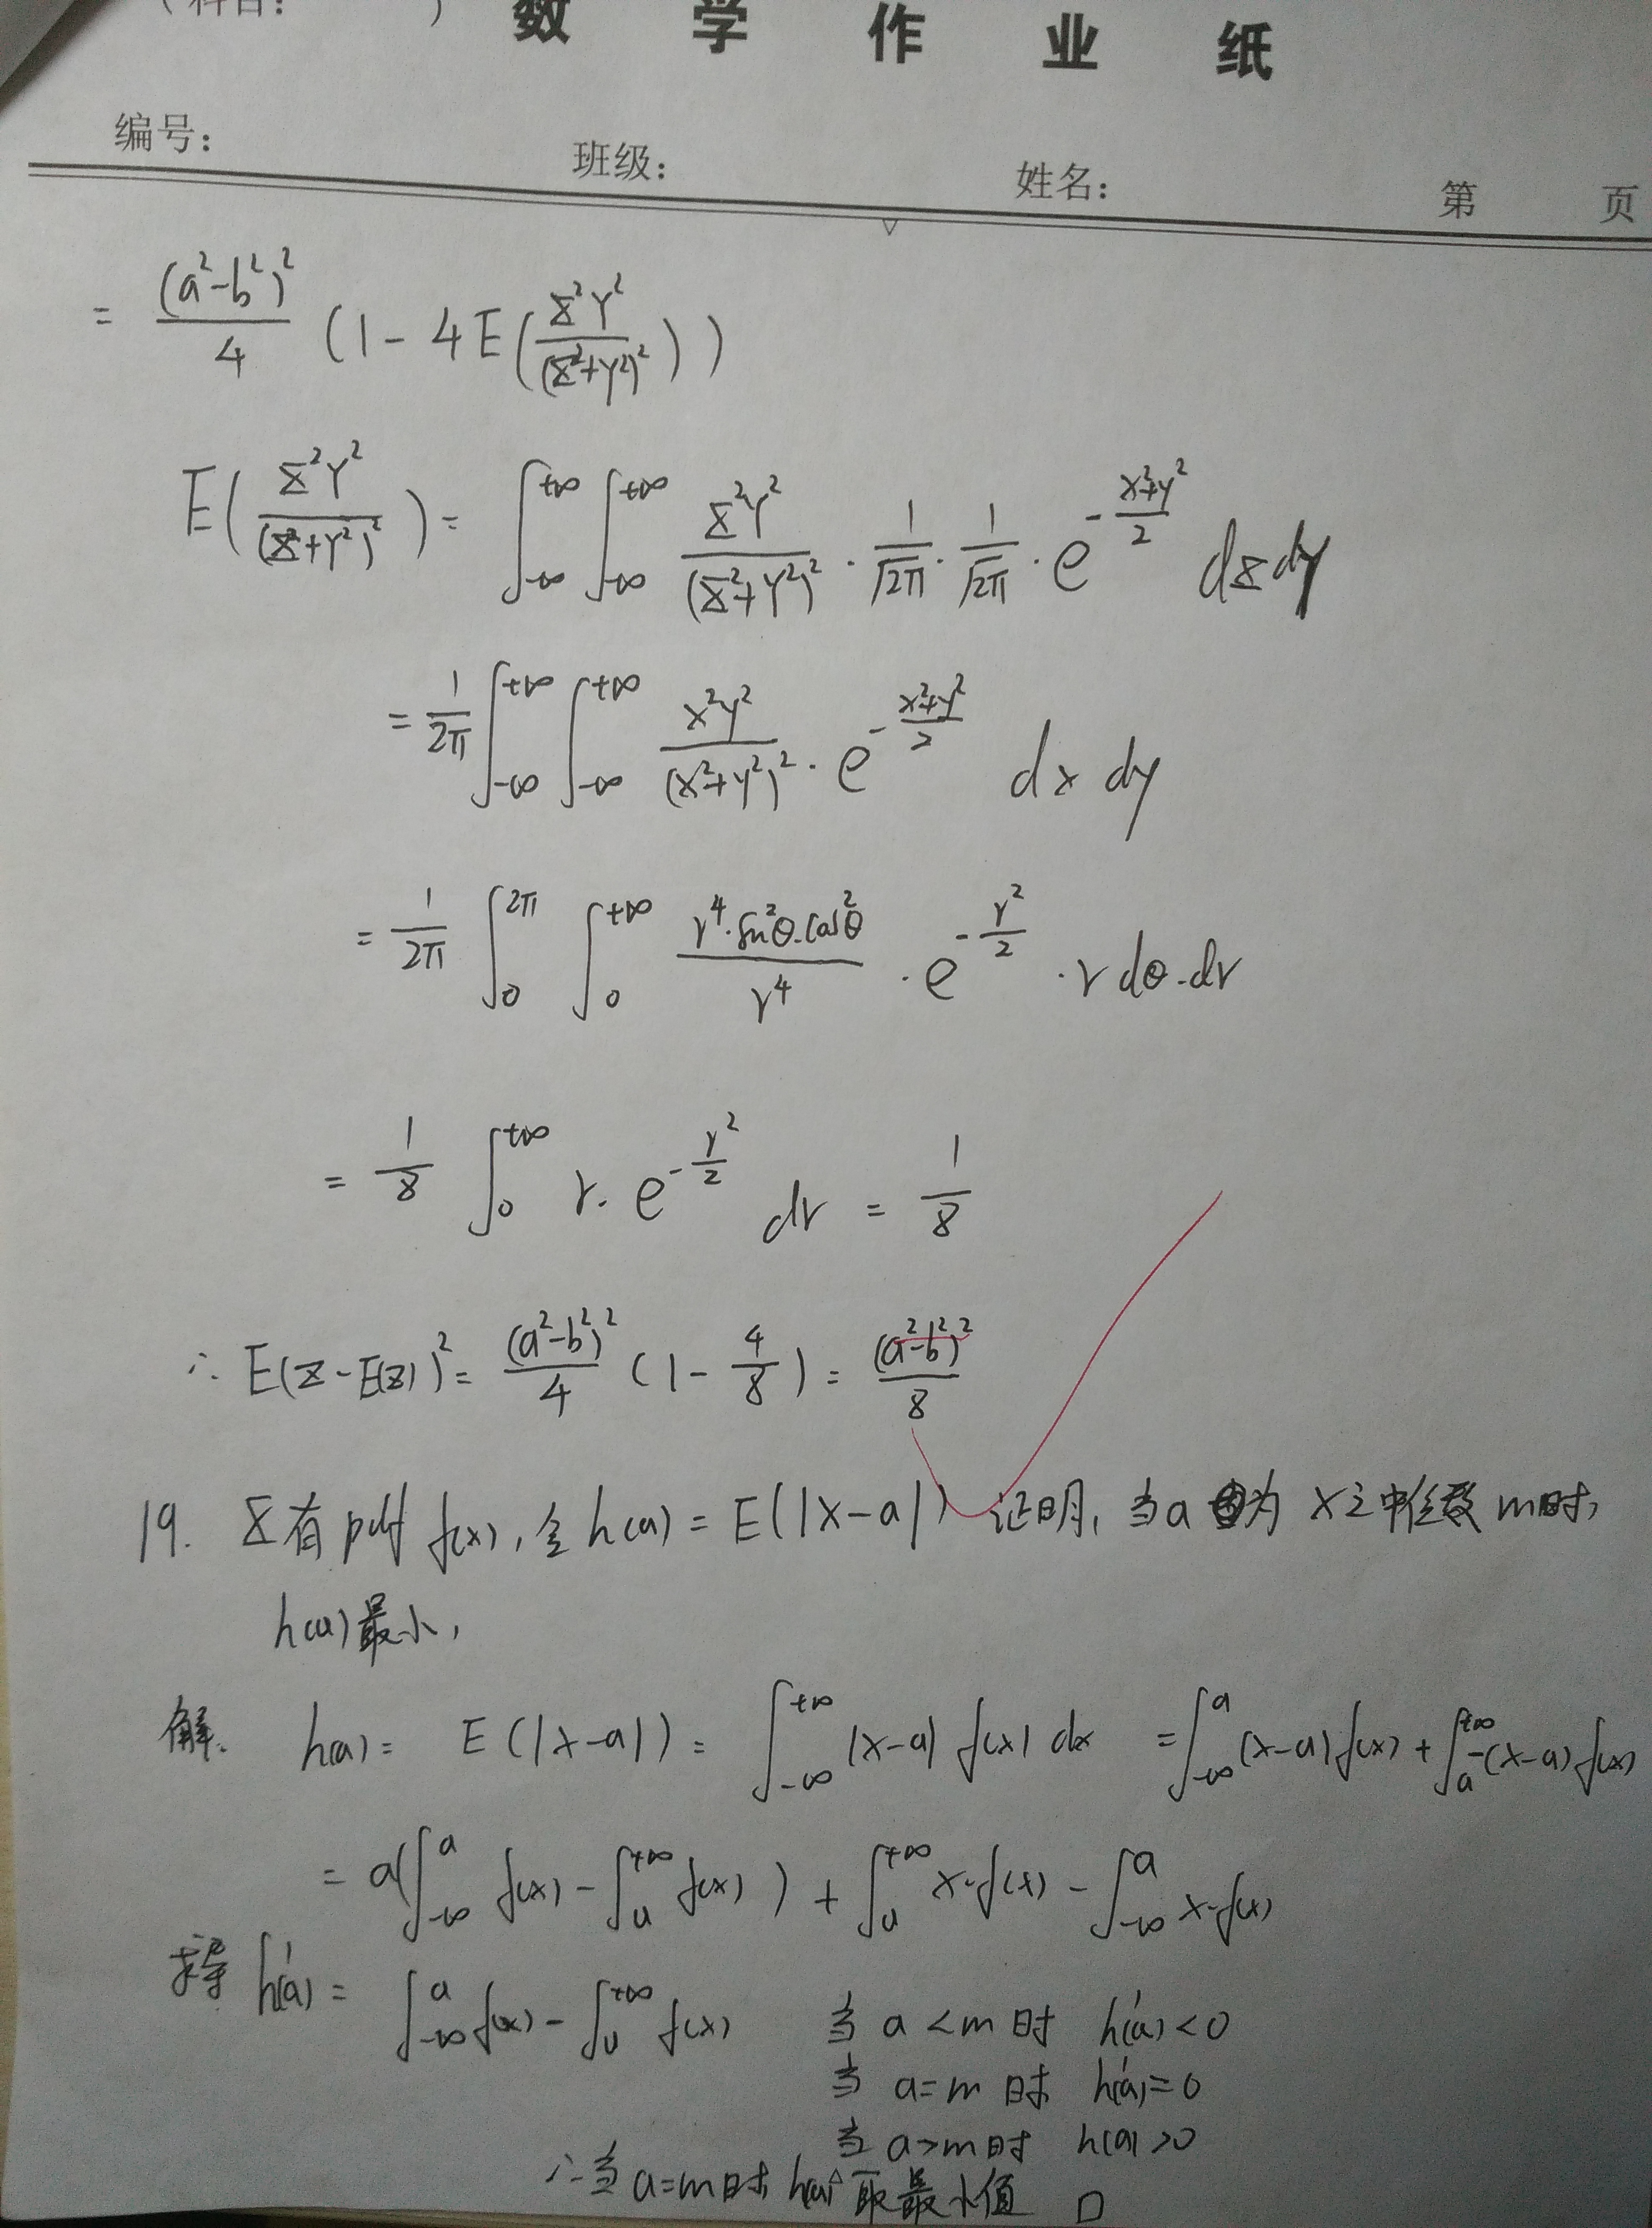 (科目: ) 数学作业纸
编号: 班级: 姓名: 第 页
= \frac{(a^2-b^2)^2}{4} (1 - 4E(\frac{X^2Y^2}{(X^2+Y^2)^2}))
E(\frac{X^2Y^2}{(X^2+Y^2)^2}) = \int_{-∞}^{+∞} \int_{-∞}^{+∞} \frac{X^2Y^2}{(X^2+Y^2)^2} · \frac{1}{\sqrt{2π}} · \frac{1}{\sqrt{2π}} · e^{-\frac{x^2+y^2}{2}} dxdy
= \frac{1}{2π} \int_{-∞}^{+∞} \int_{-∞}^{+∞} \frac{x^2y^2}{(x^2+y^2)^2} · e^{-\frac{x^2+y^2}{2}} dx dy
= \frac{1}{2π} \int_0^{2π} \int_0^{+∞} \frac{r^4·sin^2θ·cos^2θ}{r^4} · e^{-\frac{r^2}{2}} · r dθ·dr
= \frac{1}{8} \int_0^{+∞} r· e^{-\frac{r^2}{2}} dr = \frac{1}{8}
∴ E(Z-E(Z))^2 = \frac{(a^2-b^2)^2}{4} (1 - \frac{4}{8}) = \frac{(a^2-b^2)^2}{8}
19. X有pdf f(x), 令 h(a) = E(|X-a|) 证明, 当a为X之中位数m时,
h(a)最小,
解. h(a) = E(|x-a|) = \int_{-∞}^{+∞} |x-a| f(x) dx = \int_{-∞}^{a} (x-a) f(x) + \int_a^{+∞} -(x-a) f(x)
= a(\int_{-∞}^{a} f(x) - \int_a^{+∞} f(x)) + \int_a^{+∞} x·f(x) - \int_{-∞}^{a} x·f(x)
求导 h'(a) = \int_{-∞}^{a} f(x) - \int_a^{+∞} f(x) 当 a<m 时 h'(a)<0
当 a=m 时 h'(a)=0
当 a>m 时 h(a)>0
∴当 a=m时, h(a) 取最小值 □